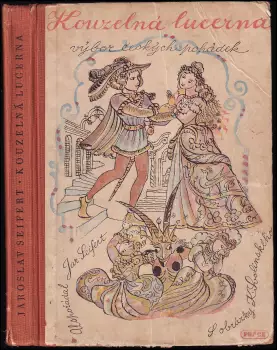 JAROSLAV SEIFERT · KOUZELNÁ LUCERNA
Kouzelná lucerna
výbor českých pohádek
Uspořádal Jar. Seifert
S obrázky